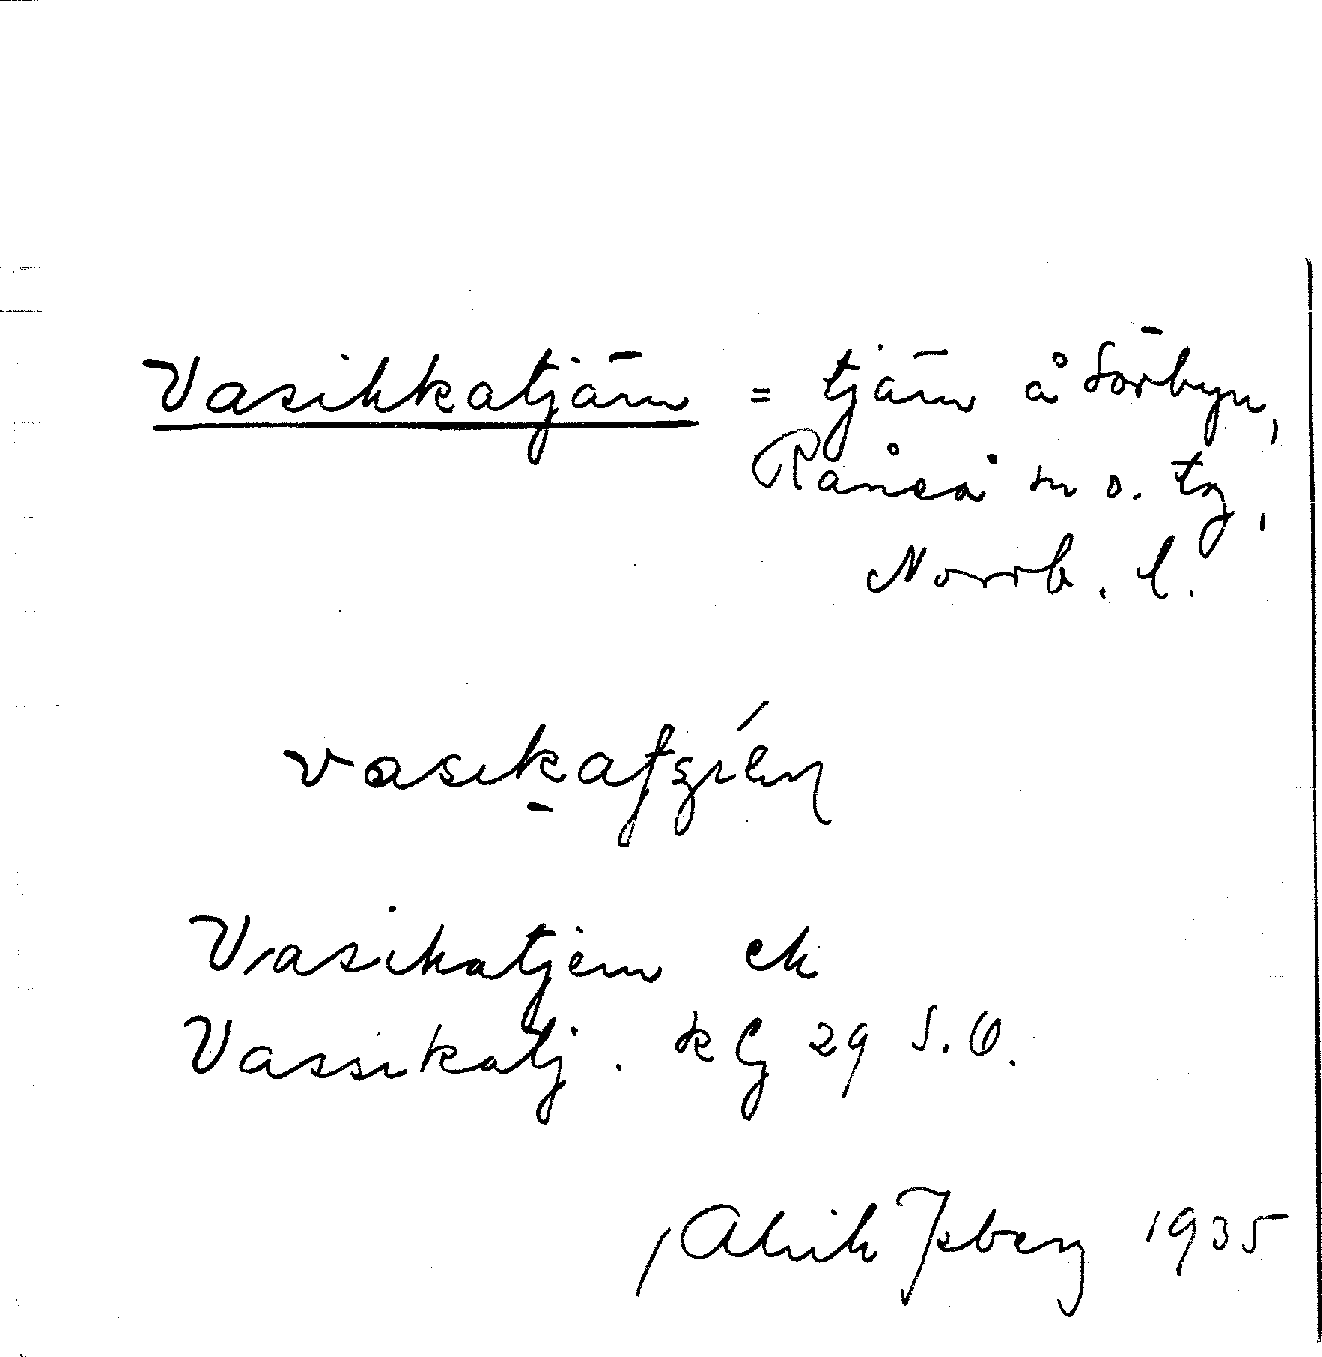 Vasikkatjärn = tjärn å Sörbyn,
Råneå sn o. tg,
Norrb. l.
Vasikatjern ek
Vassikatj. kG 29 S.O.
Alrik Isberg 1935